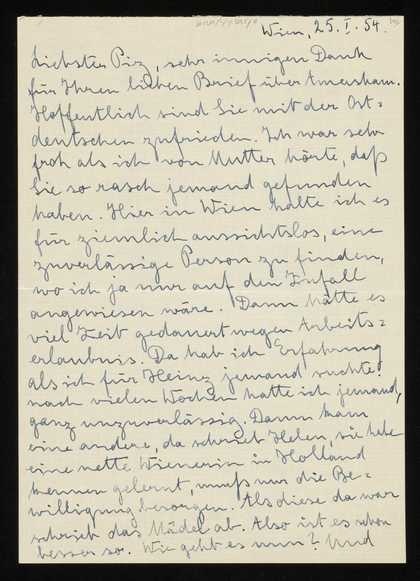 Wien, 25. I. 54.
Liebster Piz, sehr innigen Dank
für Ihren lieben Brief über Amersham.
Hoffentlich sind Sie mit der Ost=
deutschen zufrieden. Ich war sehr
froh als ich von Mutter hörte, daß
Sie so rasch jemand gefunden
haben. Hier in Wien halte ich es
für ziemlich aussichtslos, eine
zuverlässige Person zu finden,
wo ich ja nur auf den Zufall
angewiesen wäre. Dann hätte es
viel Zeit gedauert wegen Arbeits=
erlaubnis. Da hab ich Erfahrung
als ich für Heinz jemand suchte!
nach vielen Wochen hatte ich jemand,
ganz unzuverlässig. Dann kam
eine andere, da schrieb Helen, sie habe
eine nette Wienerin in Holland
kennen gelernt, muß nur die Be=
willigung besorgen. Als diese da war
schrieb das Mädel ab. Also ist es schon
besser so. Wie geht es nun? Und